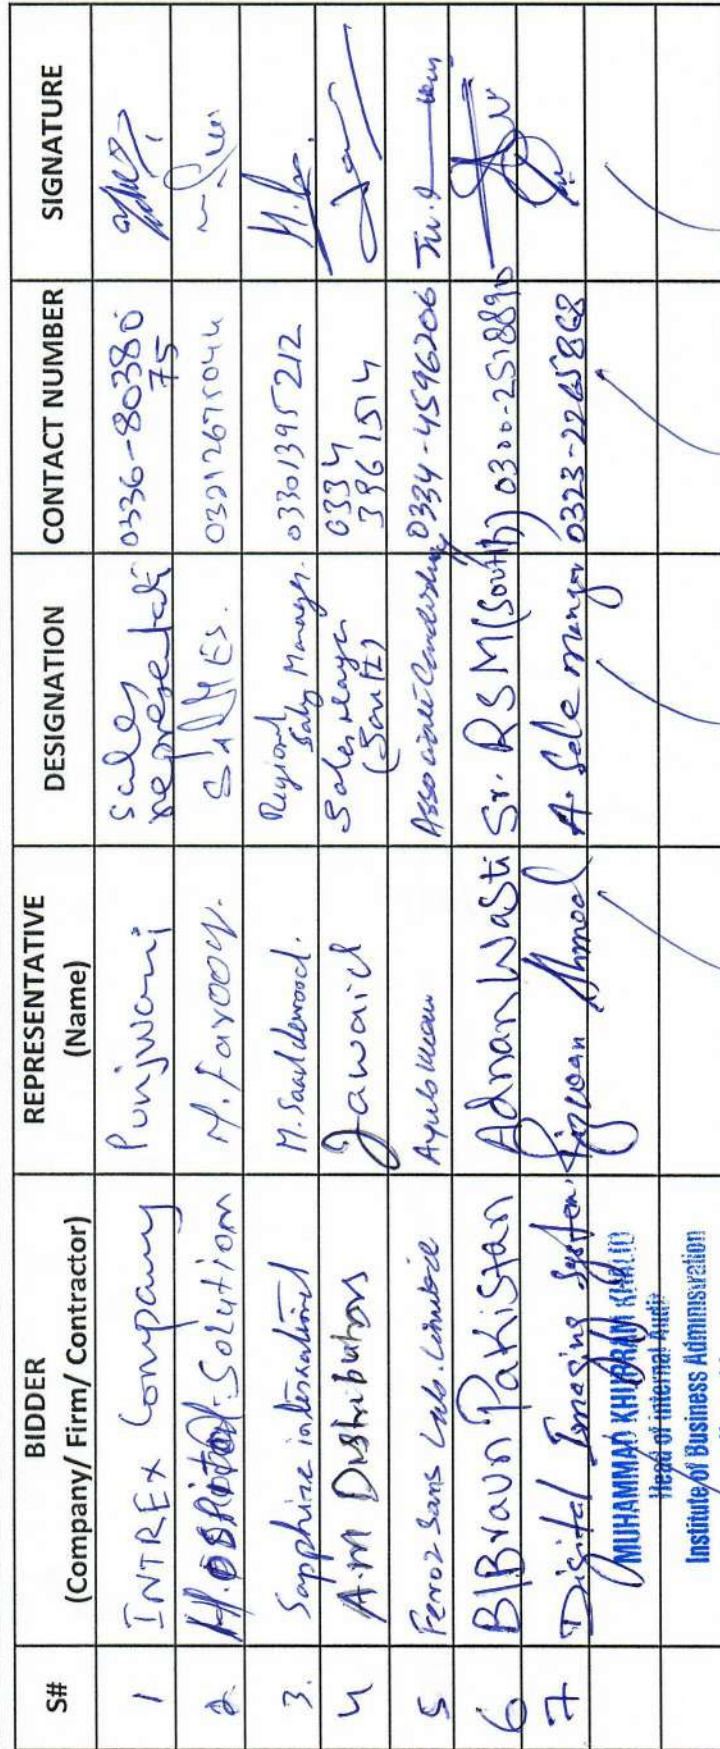 S# BIDDER (Company/ Firm/ Contractor) REPRESENTATIVE (Name) DESIGNATION CONTACT NUMBER SIGNATURE
1 INTREX Company Punjwani Sales representati 0336-80380 75
2. Solution M. Farooq. SALES.
3. Sapphire international M. Saad dawood. Regional Sales Manager. 03301395212
4 A.M Distributors Jawaid Sales Manager (South) 0334 3961514
5 Feroz Sons Labs. Associate 0334-4596206
6 B|Braun Pakistan Adnan Wasti Sr. RSM (South) 0300-2518890
7 Digital Imaging System Rizwan Ahmed A. Sale manger 0323-2265868
MUHAMMAD KHURRAM KHALID
Head of internal Audit
Institute of Business Administration